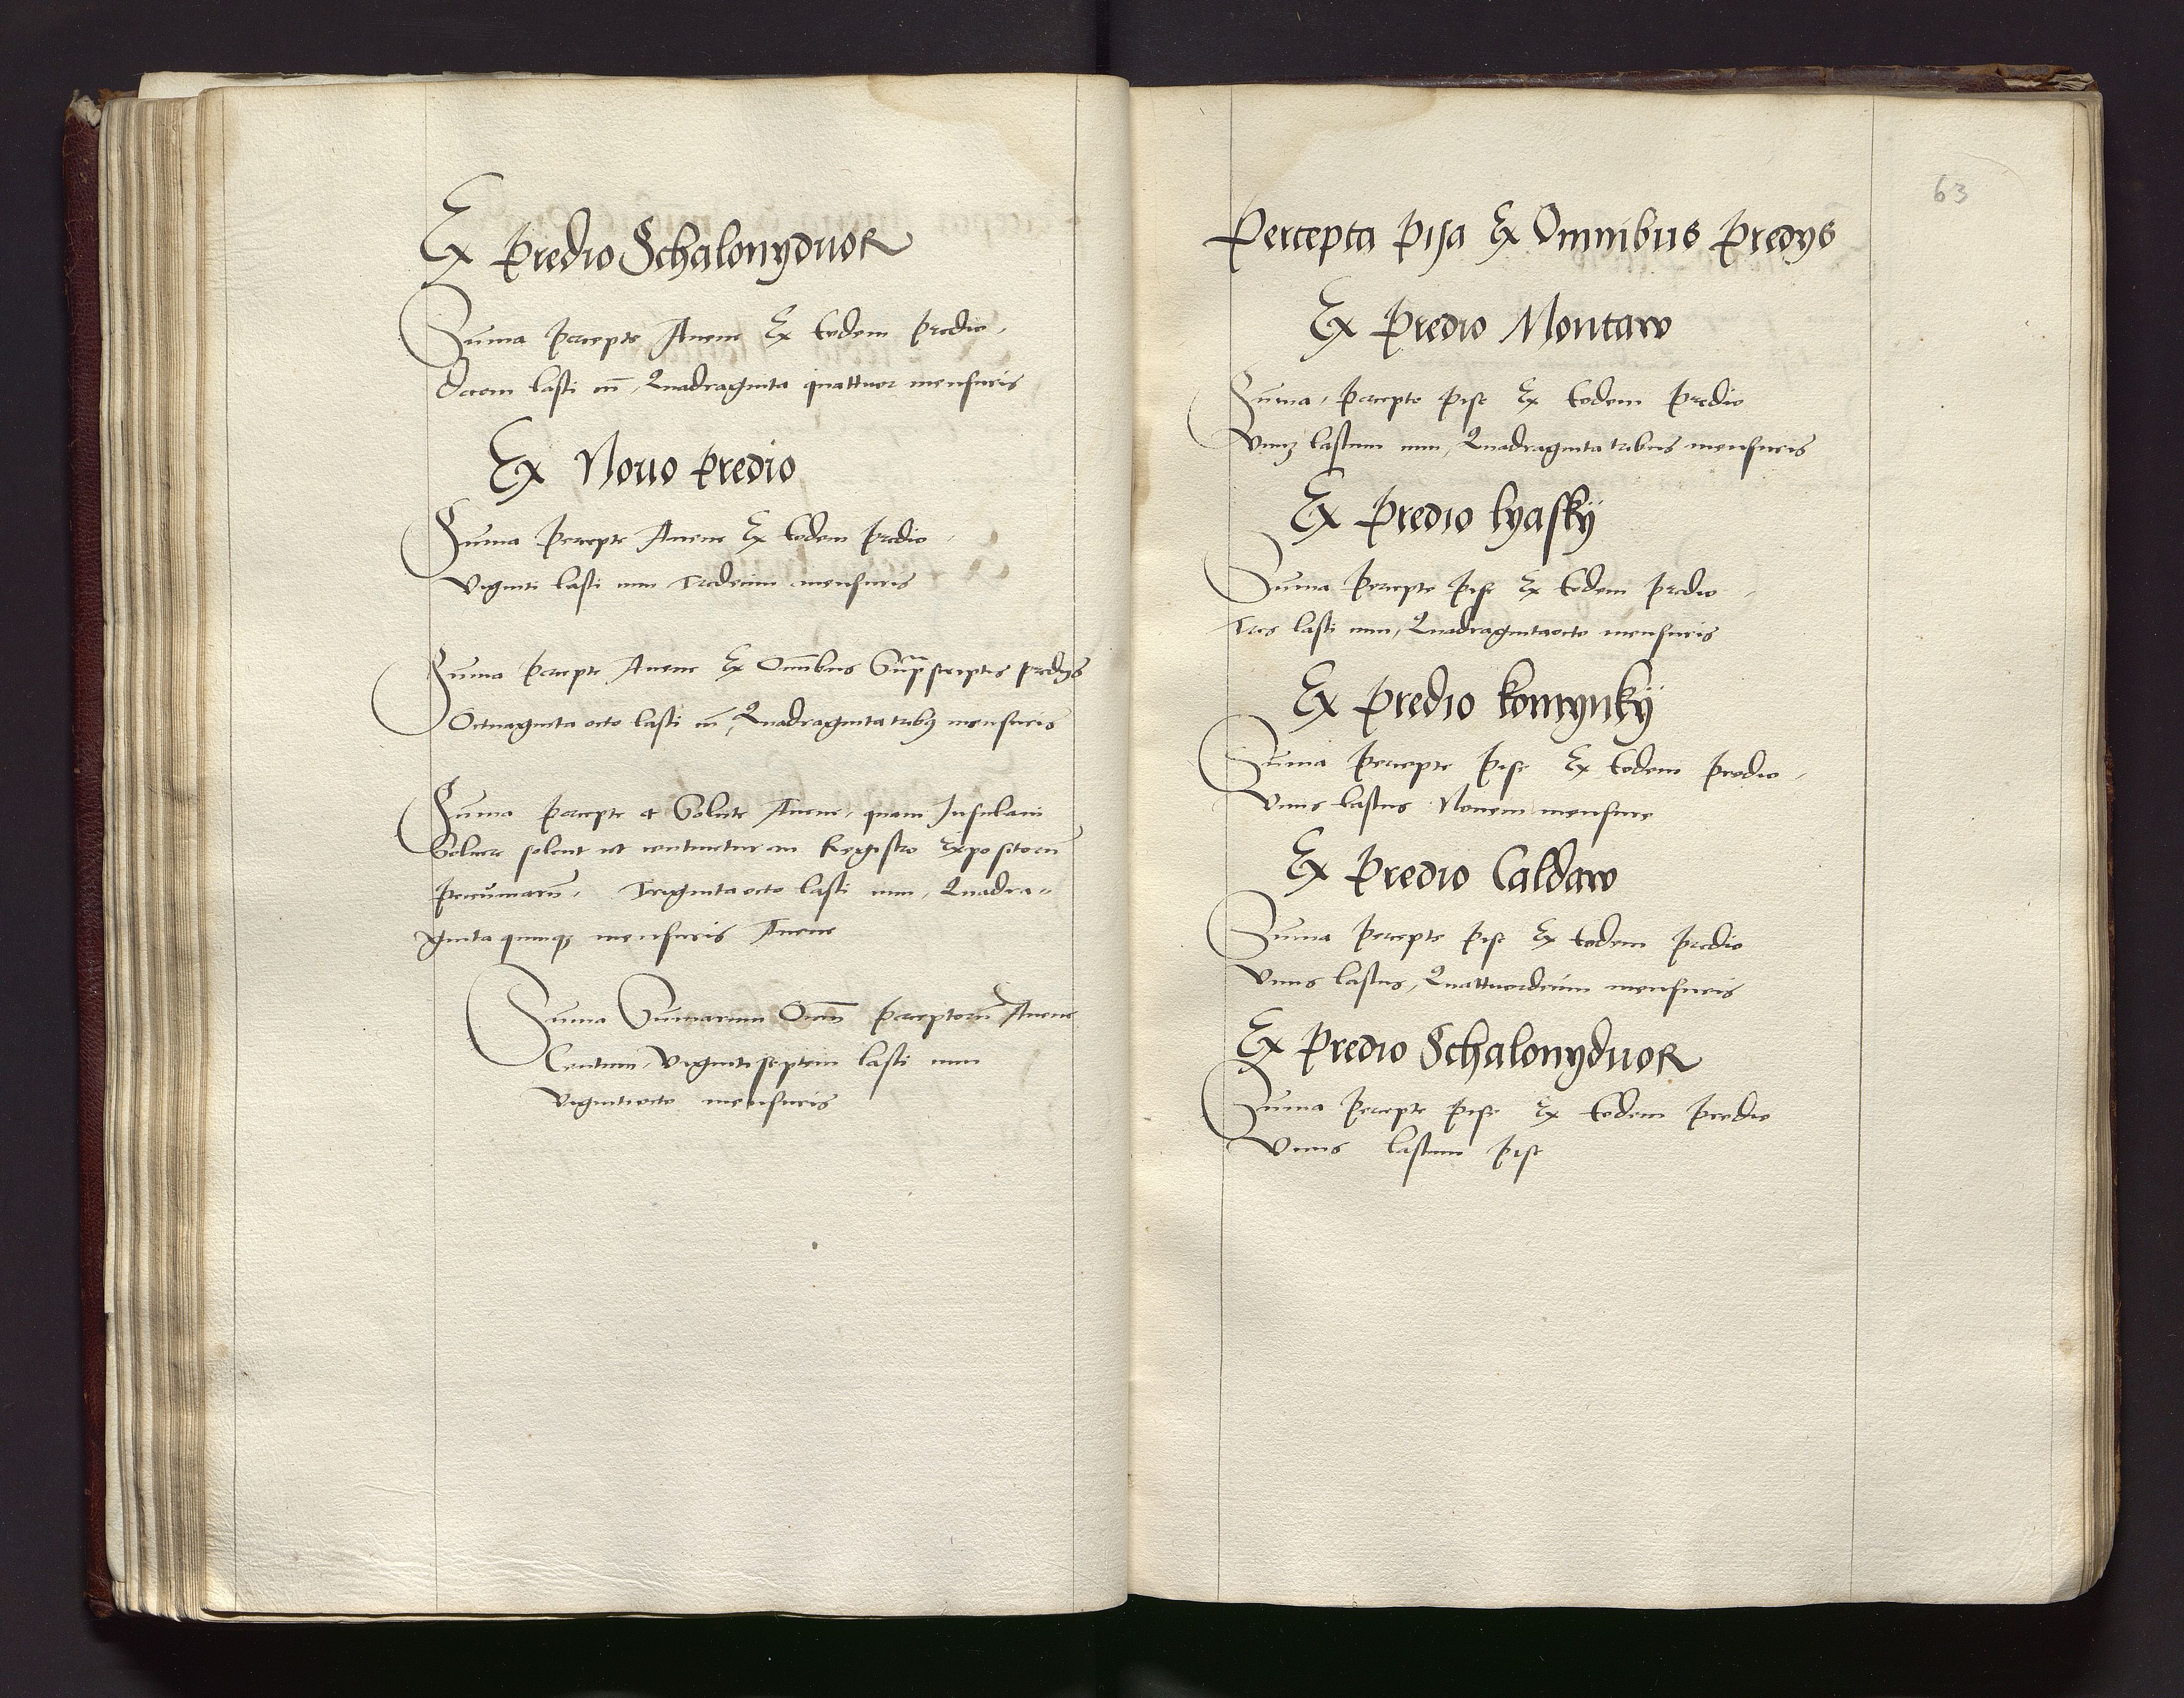 Ex predio Schalonyduor
Suma percepte Auene Ex Eodem predio,
Decem lasti cum, Quadraginta quattuor mensuris
Ex Nouo predio
Suma percepte Auene Ex Eodem predio
Viginti lasti cum Tredecim mensuris
Suma percepte Auene Ex Omibus Suprascriptis predys
Octuaginta octo lasti cum, Quadraginta tribus mensuris
Suma percepte et Solute Auene, quam Insulani
Soluere solent ut continetur in Registro Expositorum
pecuniarum, Triginta octo lasti cum, Quadra-
ginta quinque mensuris Auene
Suma Sumarum Omnium perceptorum Auene
Centum, Viginti septem lasti cum
Viginti octo mensuris
63
Percepta pisa Ex Omnibus predys
Ex predio Montaw
Suma, percepte pise Ex Eodem predio
Vnum lastum cum, Quadraginta tribus mensuris
Ex predio lyasky
Suma percepte pise Ex Eodem predio
Tres lasti cum, Quadraginta octo mensuris
Ex predio komynky
Suma percepte pise Ex Eodem predio,
Vnus lastus Nouem mensure
Ex predio Caldaw
Suma percepte pise Ex Eodem predio
Vnus lastus, Quattuordecim mensuris
Ex predio Schalonyduor
Suma percepte pise Ex Eodem predio
Vnus lastum pise